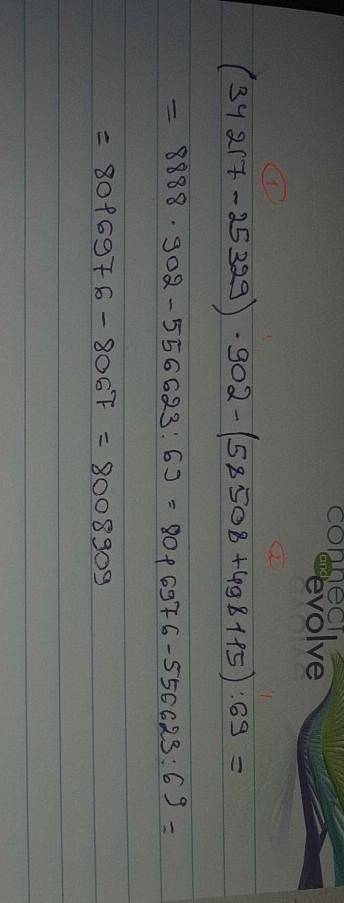 connect
and
evolve
1 2
(34217 - 25329) · 902 - (58508 + 498115) : 69 =
= 8888 · 902 - 556623 : 69 = 8016976 - 556623 : 69 =
= 8016976 - 8067 = 8008909